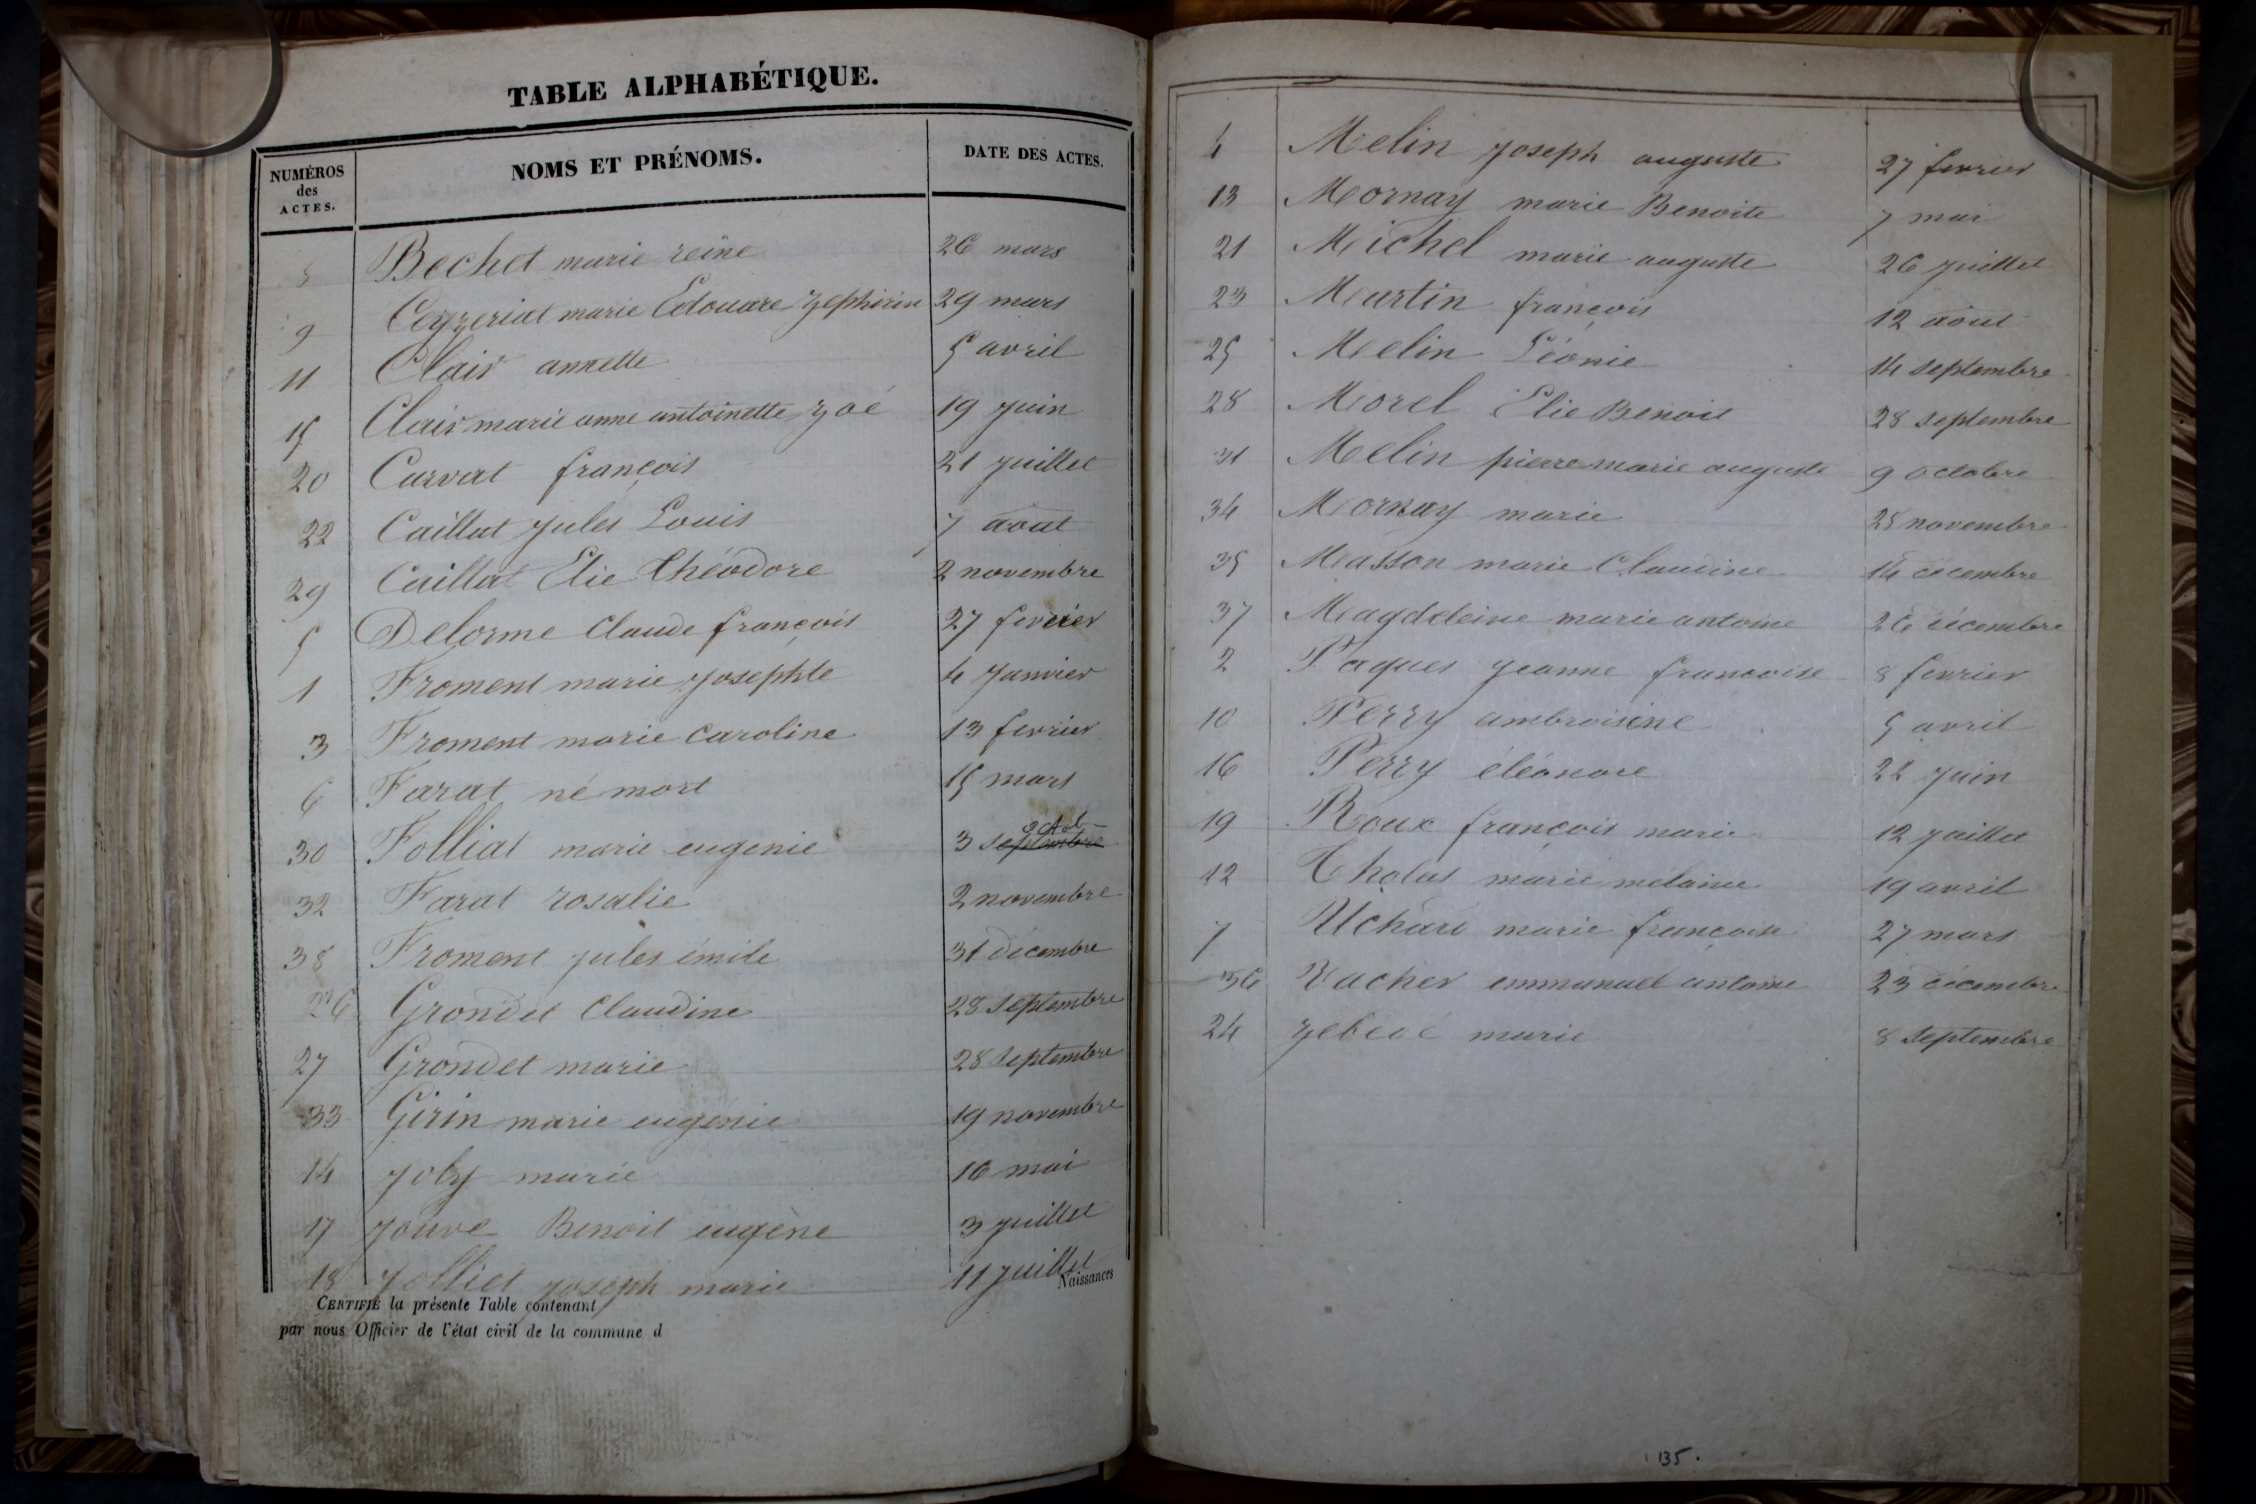 TABLE ALPHABÉTIQUE.
NUMÉROS des ACTES. NOMS ET PRÉNOMS. DATE DES ACTES.
8 Bechet marie reine 26 mars
9 Ceyzeriat marie Edouare Zephirin 29 mars
11 Clair annette 5 avril
15 Clair marie anne antoinette Zoé 19 juin
20 Curvat françois 21 juillet
22 Caillat jules Louis 7 aout
29 Caillat Elie Théodore 2 novembre
5 Delorme Claude françois 27 fevrier
1 Froment marie josephte 4 janvier
3 Froment marie Caroline 13 fevrier
6 Farat né mort 15 mars
30 Folliat marie eugenie 3 septembre octob
32 Farat rosalie 2 novembre
38 Froment jules émile 31 décembre
26 Grondet Claudine 28 septembre
27 Grondet marie 28 septembre
33 Girin marie eugénie 19 novembre
14 Joly marie 16 mai
17 Jouve Benoit eugène 3 juillet
18 Jolliet joseph marie 11 juillet
Naissances
CERTIFIÉ la présente Table contenant
par nous Officier de l'état civil de la commune d
4 Melin joseph auguste 27 fevrier
13 Mornay marie Benoite 7 mai
21 Michel marie auguste 26 juillet
23 Martin françois 12 aout
25 Melin Léonie 14 septembre
28 Morel Elie Benoit 28 septembre
31 Melin pierre marie auguste 9 octobre
34 Mornay marie 25 novembre
35 Masson marie Claudine 14 décembre
37 Magddeleine marie antoine 26 décembre
2 Paques jeanne françoise 8 fevrier
10 Perry ambroisine 5 avril
16 Perry éléonore 22 juin
19 Roux françois marie 12 juillet
12 Tholas marie mélanie 19 avril
7 Uchard marie françoise 27 mars
36 Vacher emmanuel antoine 23 décembre
24 marie 8 septembre
135.